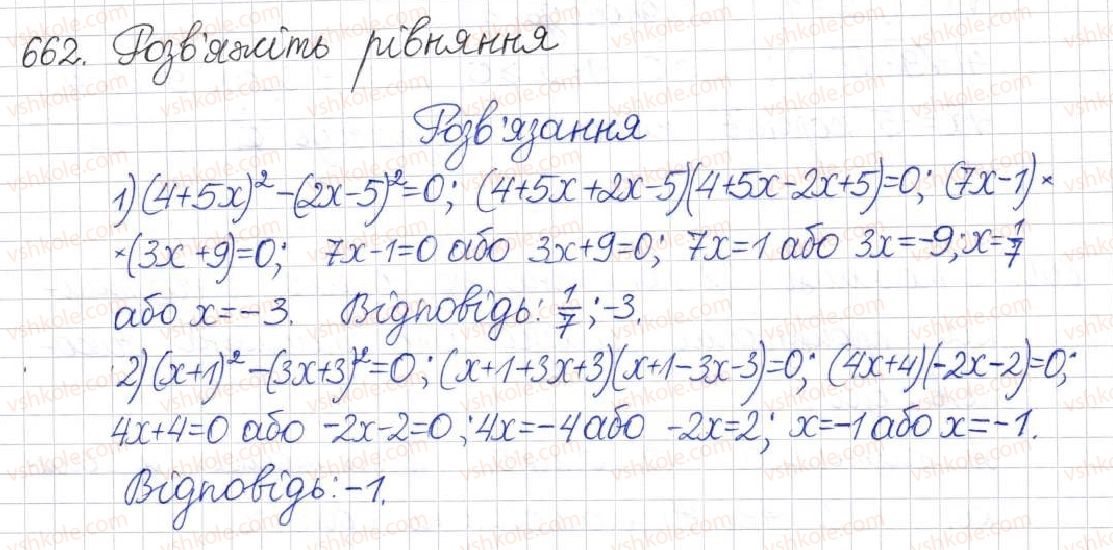 662. Розв'яжіть рівняння
Розв'язання
1) (4+5x)²-(2x-5)²=0; (4+5x+2x-5)(4+5x-2x+5)=0; (7x-1)×
×(3x+9)=0; 7x-1=0 або 3x+9=0; 7x=1 або 3x=-9; x=1/7
або x=-3. Відповідь: 1/7; -3.
2) (x+1)²-(3x+3)²=0; (x+1+3x+3)(x+1-3x-3)=0; (4x+4)(-2x-2)=0;
4x+4=0 або -2x-2=0; 4x=-4 або -2x=2; x=-1 або x=-1.
Відповідь: -1.